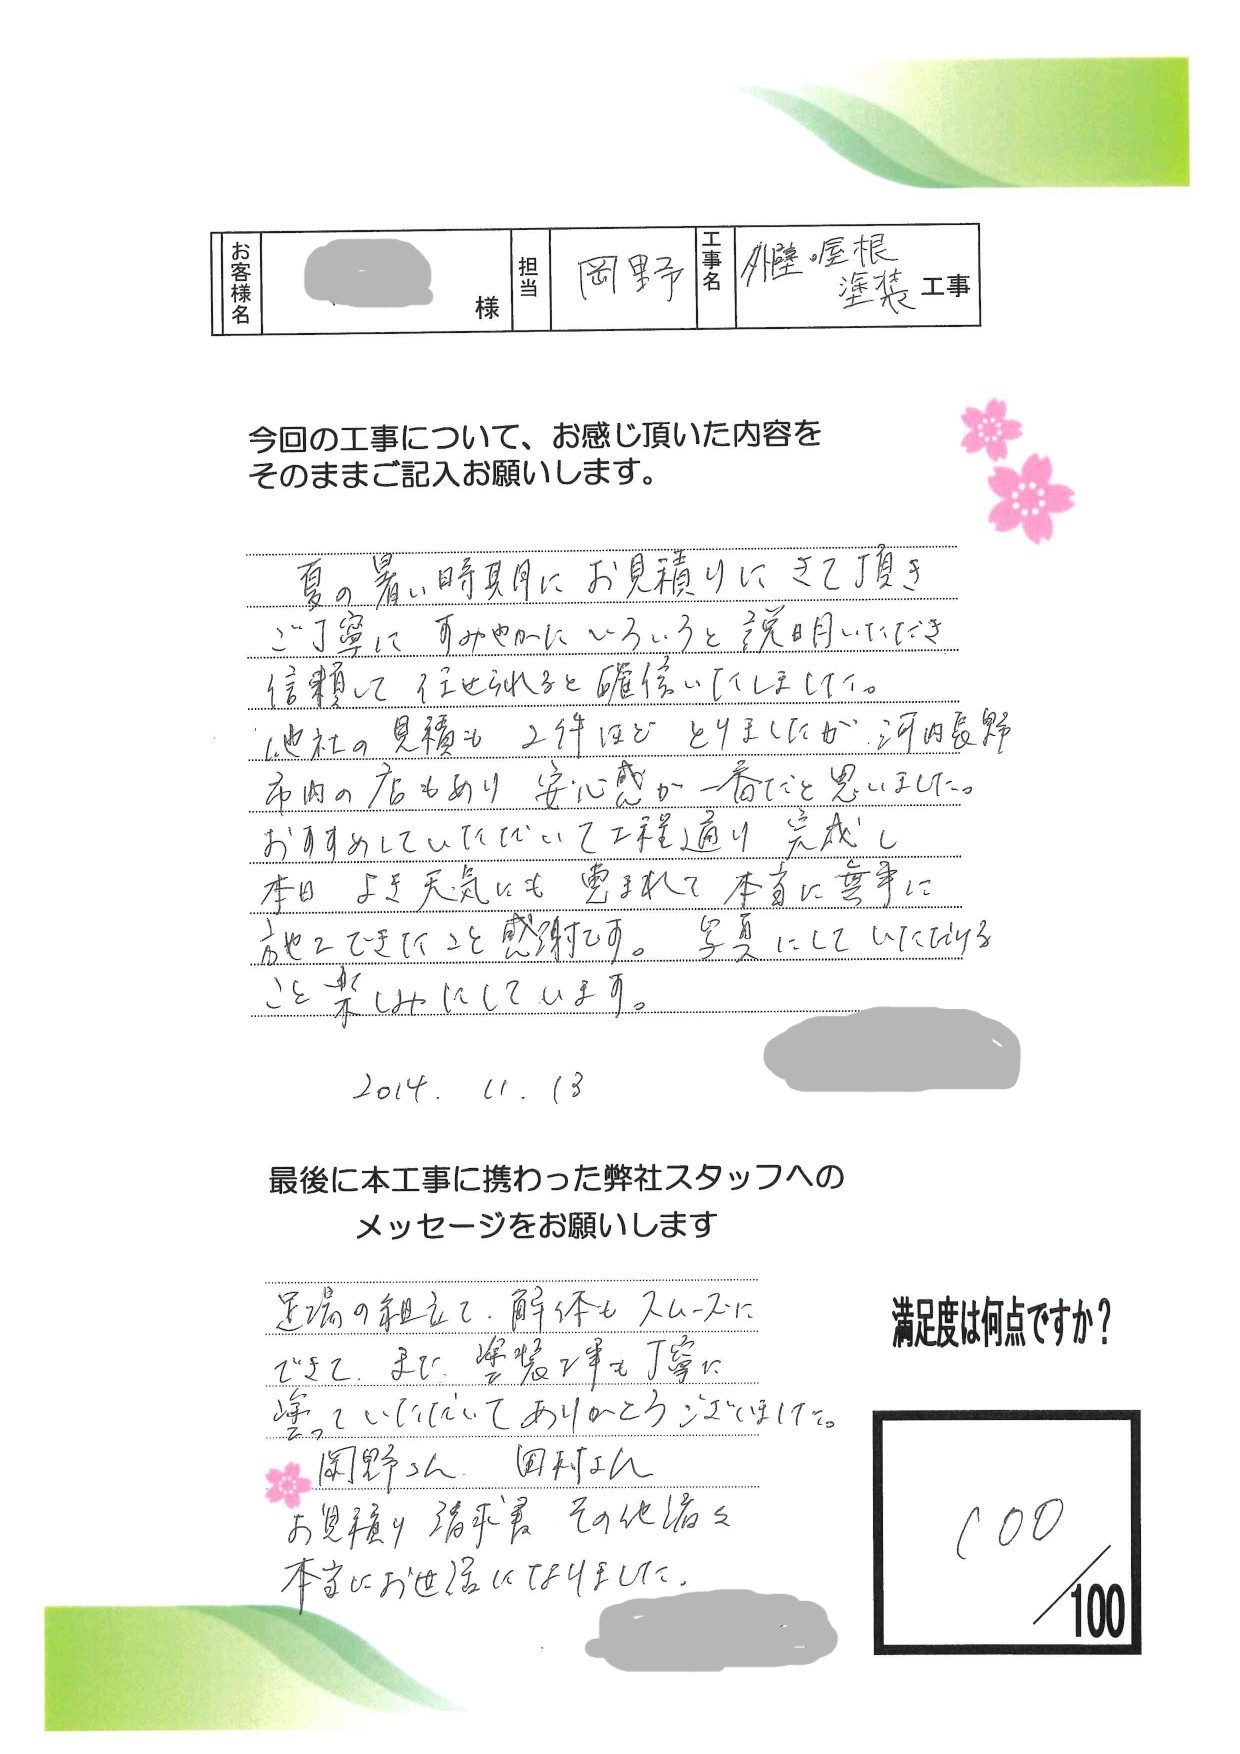 お客様名 様 担当 岡野 工事名 外壁・屋根塗装工事
今回の工事について、お感じ頂いた内容を
そのままご記入お願いします。
夏の暑い時期にお見積りにきて頂き
ご丁寧に すみやかに いろいろと説明いただき
信頼して任せられると確信いたしました。
他社の見積も 2件ほど とりましたが、河内長野
市内の店もあり 安心感が一番だと思いました。
おすすめしていただいて工程通り 完成し
本日 よき天気にも 恵まれて 本当に無事に
施工できたこと感謝です。 写真にしていただける
こと楽しみにしています。
2014. 11. 13
最後に本工事に携わった弊社スタッフへの
メッセージをお願いします
足場の組立て、解体も スムーズに
できて、また、塗装工事も丁寧に
塗っていただいてありがとうございました。
岡野さん、田村さん
お見積り 請求書 その他諸々
本当にお世話になりました。
満足度は何点ですか?
100
/100